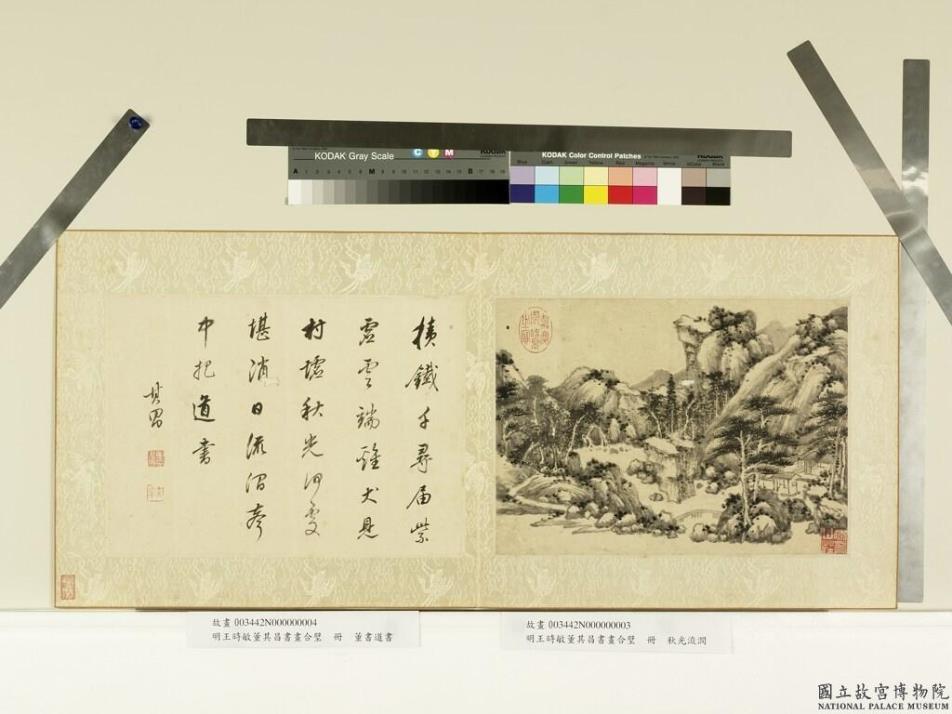 KODAK Gray Scale
C Y M
A 1 2 3 4 5 6 M 8 9 10 11 12 13 14 15 B 17 18 19
KODAK Color Control Patches
Blue Cyan Green Yellow Red Magenta White 3/Color Black
積鐵千尋届紫
虛雲端雞犬見
村墟秋光何處
堪消日流澗聲
中把道書
其昌
故畫 003442N000000004
明王時敏董其昌書畫合璧 冊 董書道書
故畫 003442N000000003
明王時敏董其昌書畫合璧 冊 秋光流澗
國立故宮博物院
NATIONAL PALACE MUSEUM